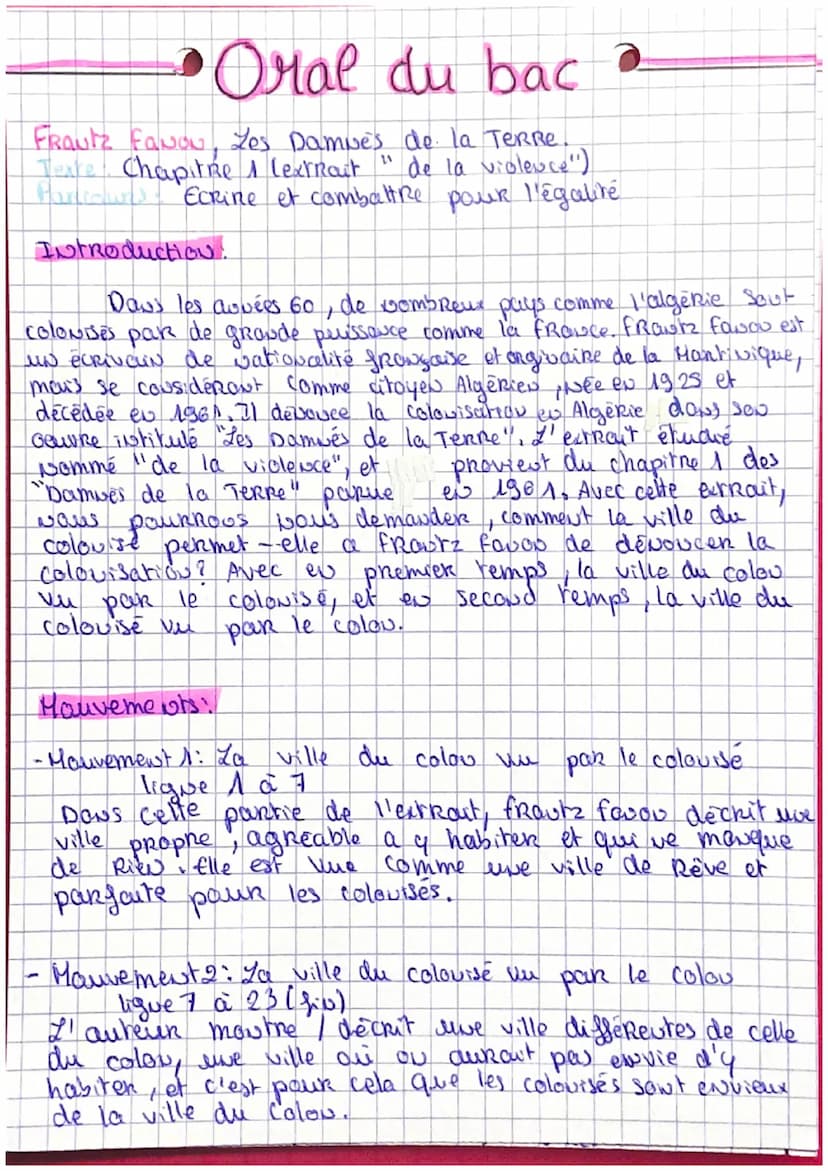 Oral du bac
Frantz Fanon, Les Damnés de la Terre.
Texte : Chapitre 1 (extrait " de la violence")
Parcours : Ecrire et combattre pour l'égalité
Introduction :
Dans les années 60, de nombreux pays comme l'algérie sont
colonisés par de grande puissance comme la France. Frantz Fanon est
un écrivain de nationalité française et originaire de la Martinique,
mais se considérant comme citoyen Algérien, née en 1925 et
décédée en 1961. Il dénonce la colonisation en Algérie dans son
oeuvre intitulé "Les Damnés de la Terre". L'extrait étudié
nommé "de la violence", et provient du chapitre 1 des
"Damnés de la Terre" parue en 1961. Avec cette extrait,
nous pourrons nous demander, comment la ville du
colonisé permet-elle a Frantz Fanon de dénoncer la
colonisation? Avec en premier temps, la ville du colon
vu par le colonisé, et en second temps, la ville du
colonisé vu par le colon.
Mouvements :
- Mouvement 1 : La ville du colon vu par le colonisé
ligne 1 à 7
Dans cette partie de l'extrait, Frantz Fanon décrit une
ville propre, agréable a y habiter et qui ne manque
de Rien. Elle est vue comme une ville de Rêve et
parfaite pour les colonisés.
- Mouvement 2 : La ville du colonisé vu par le colon
ligne 7 à 23 (fin)
L'auteur montre / décrit une ville différentes de celle
du colon, une ville où on aurait pas envie d'y
habiter, et c'est pour cela que les colonisés sont envieux
de la ville du Colon.